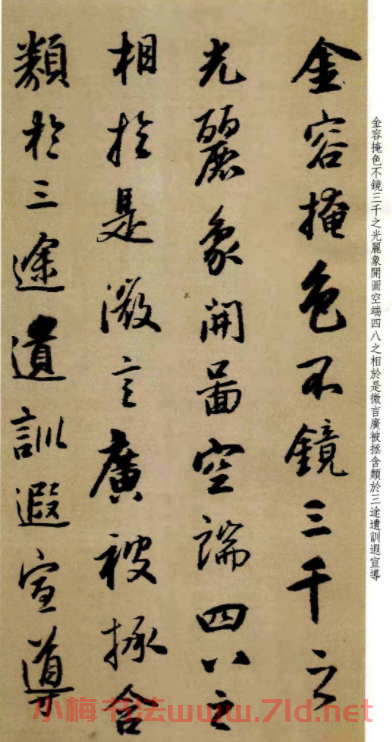 金容掩色不鏡三千之
光麗象開啚空端四八之
相於是微言廣被拯含
類於三途遺訓遐宣導
金容掩色不鏡三千之光麗象開圖空端四八之相於是微言廣被拯含類於三途遺訓遐宣導
小梅书法www.7ld.net